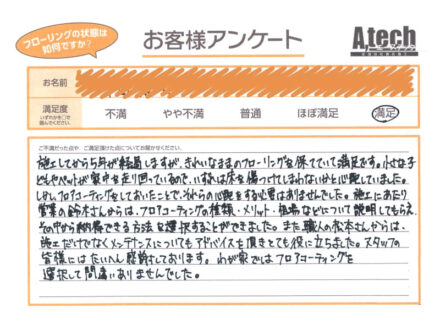 フローリングの状態は
如何ですか?
お客様アンケート
A.tech
お名前
満足度
いずれかを○で
囲んでください。
不満 やや不満 普通 ほぼ満足 満足
ご不満だった点や、ご満足頂けた点についてお聞かせください。
施工してから5ヶ月が経過しますが、きれいなままのフローリングを保てていて満足です。小さな子
どもやペットが家中を走り回っているので、いずれは床を傷つけてしまわないかと心配していました。
しかし、フロアコーティングをしておいたことで、それらの心配をする必要はありませんでした。施工にあたり
営業の鈴木さんからは、フロアコーティングの種類・メリット・相場などについて説明してもらえ、
その中から納得できる方法を選択することができました。また、職人の松本さんからは、
施工だけでなくメンテナンスについてもアドバイスを頂きとても役に立ちました。スタッフの
皆様にはたいへん感謝しております。わが家ではフロアコーティングを
選択して間違いありませんでした。